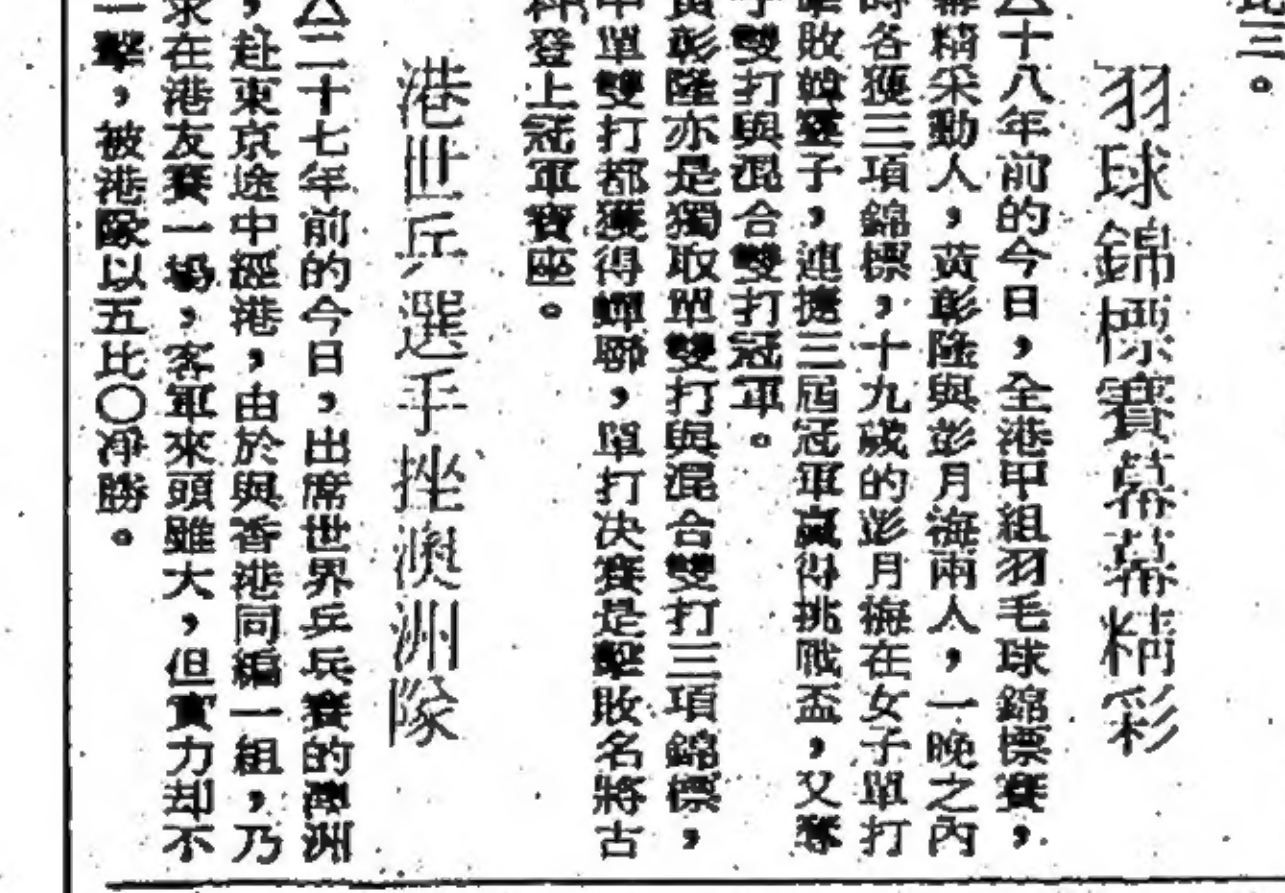 比三。
羽球錦標賽幕幕精彩
△十八年前的今日，全港甲組羽毛球錦標賽，
幕精采動人，黃彰隆與彭月梅兩人，一晚之內
時各獲三項錦標，十九歲的彭月梅在女子單打
擊敗韓運子，連捷三屆冠軍贏得挑戰盃，又奪
子雙打與混合雙打冠軍。
黃彰隆亦是獨取單雙打與混合雙打三項錦標，
中單雙打都獲得蟬聯，單打決賽是擊敗名將古
登上冠軍寶座。
港世乒選手挫澳洲隊
△二十七年前的今日，出席世界乒乓賽的澳洲
，赴東京途中經港，由於與香港同編一組，乃
求在港友賽一場，客軍來頭雖大，但實力却不
一擊，被港隊以五比〇净勝。